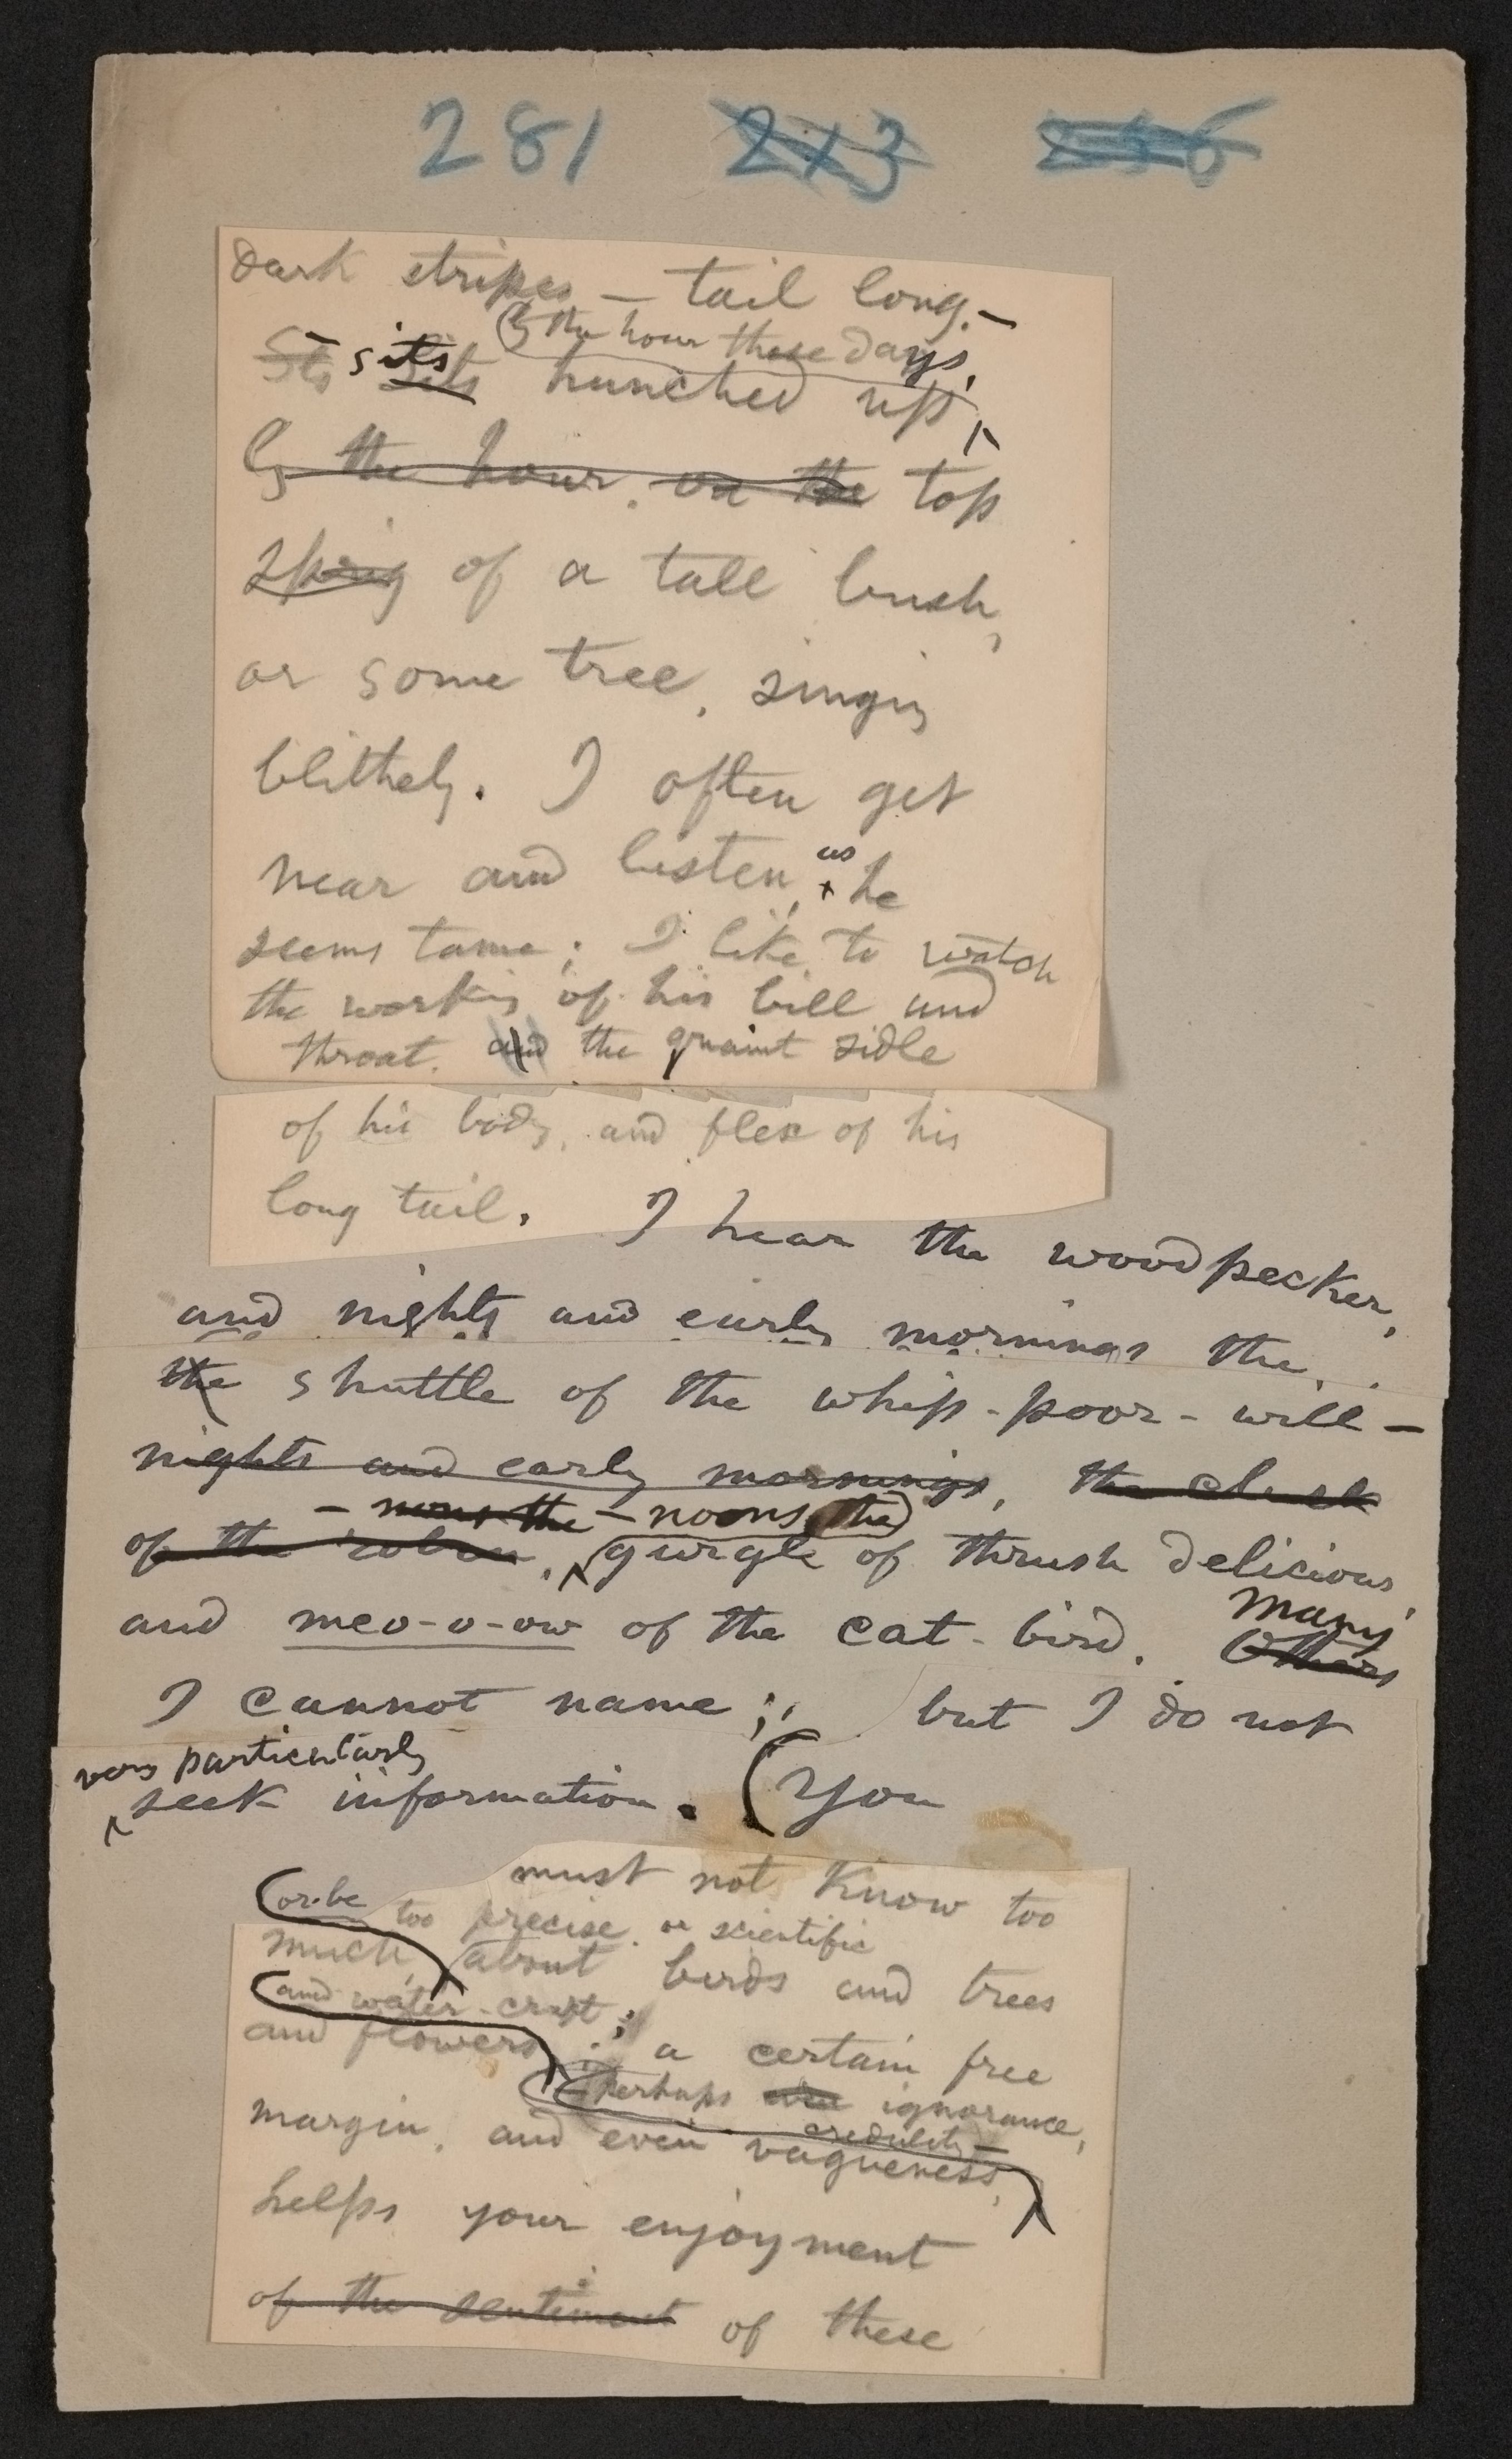 281 213 256
dark stripes — tail long. —
by the hour these days,
Sits sits Sits hunched up,
by the hour, on the top
sprig of a tall bush,
or some tree, singing
blithely. I often get
as
near and listen, he
seems tame; I like to watch
the working of his bill and
throat, and the quaint sidle
of his body, and flex of his
long tail. I hear the woodpecker,
and nights and early mornings the
the shuttle of the whip-poor-will —
nights and early mornings, the cluck
— noons the — noons, the
of the robin, gurgle of thrush delicious
and meo-o-ow of the cat-bird. Many
Others
I cannot name; but I do not
very particularly
seek information. (You
must not know too
or be too precise or scientific
much about birds and trees
and water-craft;
and flowers; a certain free
perhaps ignorance,
credulity —
margin, and even vagueness,
helps your enjoyment
of the sentiment of these